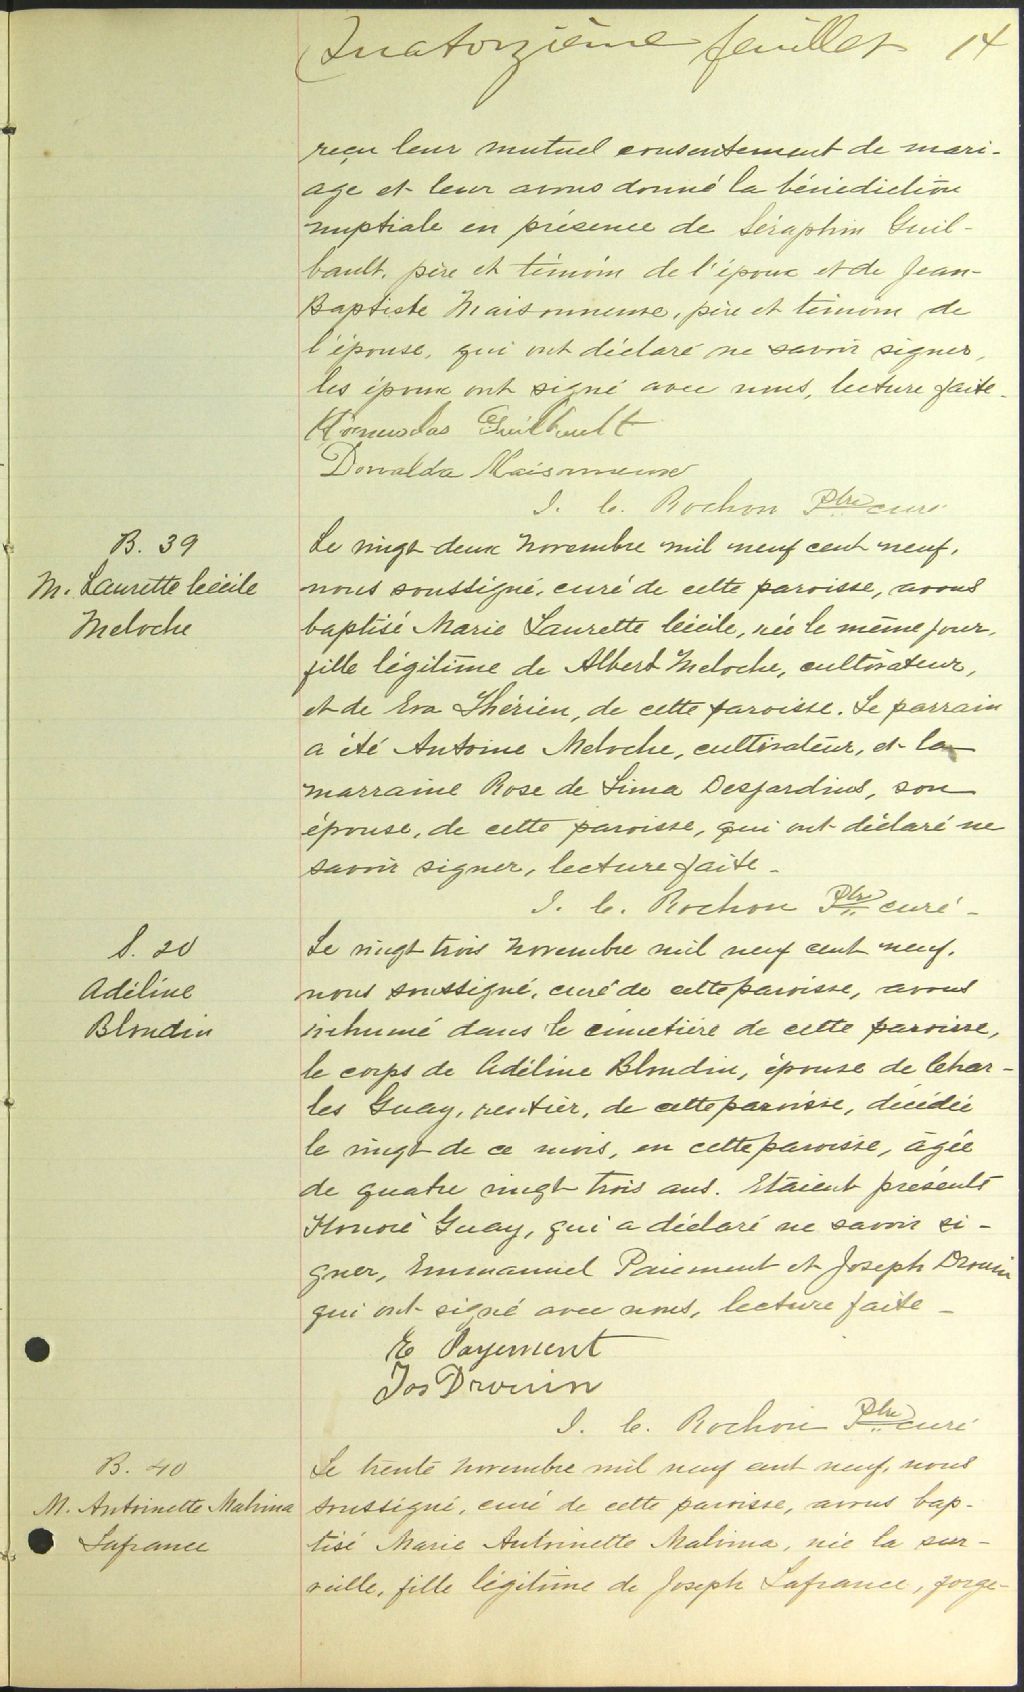 Quatorzième feuillet 14
reçu leur mutuel consentement de mari-
age et leur avons donné la bénédiction
nuptiale en présence de Séraphin Guil-
bault, père et témoin de l'époux et de Jean-
Baptiste Maisonneuve, père et témoin de
l'épouse, qui ont déclaré ne savoir signer,
les époux ont signé avec nous, lecture faite.
Guilbault
Donalda Maisonneuve
J. C. Rochon Ptre curé
B. 39
M. Laurette Cécile
Meloche
Le vingt-deux Novembre mil neuf cent neuf,
nous soussigné, curé de cette paroisse, avons
baptisé Marie Laurette Cécile, née le même jour,
fille légitime de Albert Meloche, cultivateur,
et de Eva Thérien, de cette paroisse. Le parrain
a été Antoine Meloche, cultivateur, et la
marraine Rose de Lima Desjardins, son
épouse, de cette paroisse, qui ont déclaré ne
savoir signer, lecture faite.
J. C. Rochon Ptre curé.
S. 20
Adéline
Blondin
Le vingt trois Novembre mil neuf cent neuf,
nous soussigné, curé de cette paroisse, avons
inhumé dans le cimetière de cette paroisse,
le corps de Adéline Blondin, épouse de Char-
les Guay, rentier, de cette paroisse, décédée
le vingt de ce mois, en cette paroisse, âgée
de quatre vingt trois ans. Etaient présents
Honoré Guay, qui a déclaré ne savoir si-
gner, Emmanuel Paiement et Joseph Drouin
qui ont signé avec nous, lecture faite.
E Payement
Jos Drouin
J. C. Rochon Ptre curé
B. 40
M. Antoinette Malvina
Lafrance
Le trente Novembre mil neuf cent neuf, nous
soussigné, curé de cette paroisse, avons bap-
tisé Marie Antoinette Malvina, née la sur-
veille, fille légitime de Joseph Lafrance, forge-